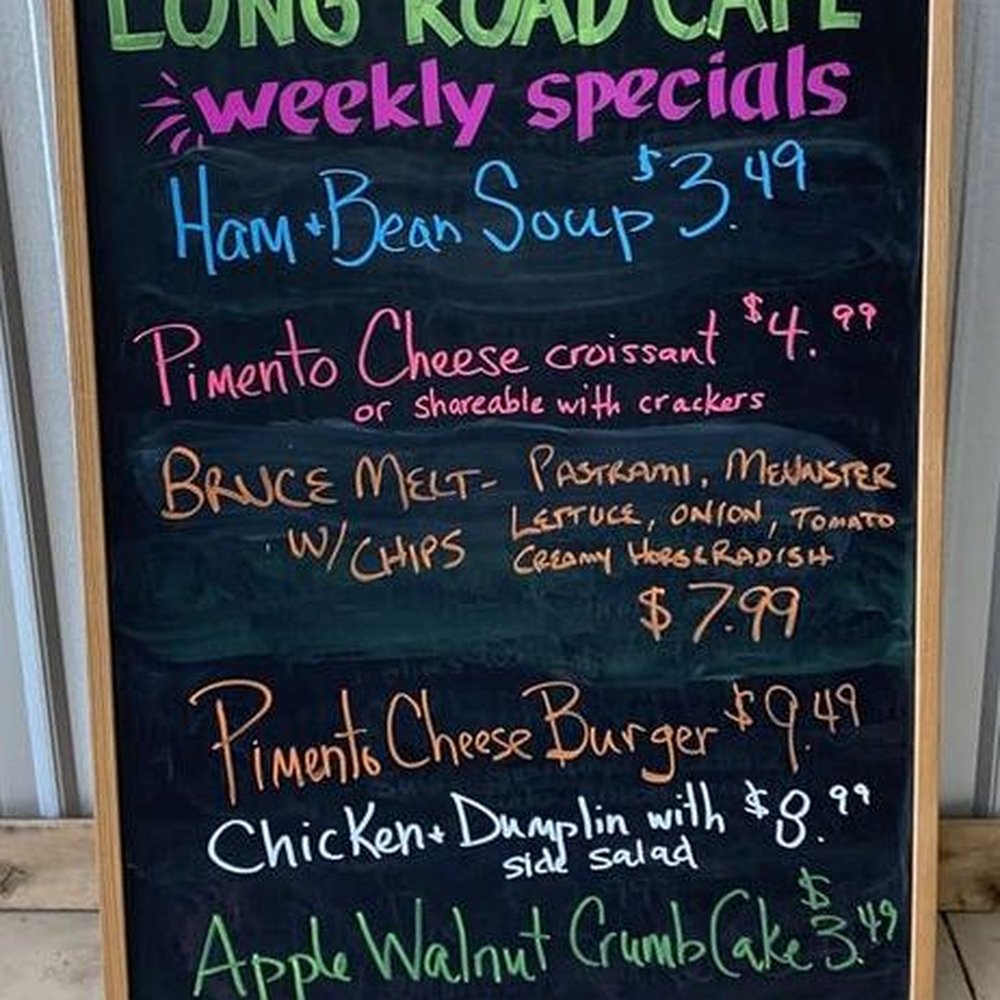 LONG ROAD CAFE
weekly specials
Ham + Bean Soup $3.49
Pimento Cheese croissant $4.99
or shareable with crackers
BRUCE MELT- PASTRAMI, MEUNSTER
W/ CHIPS LETTUCE, ONION, TOMATO
CREAMY HORSERADISH
$7.99
Pimento Cheese Burger $9.49
Chicken + Dumplin with $8.99
side salad
Apple Walnut Crumb Cake $3.49